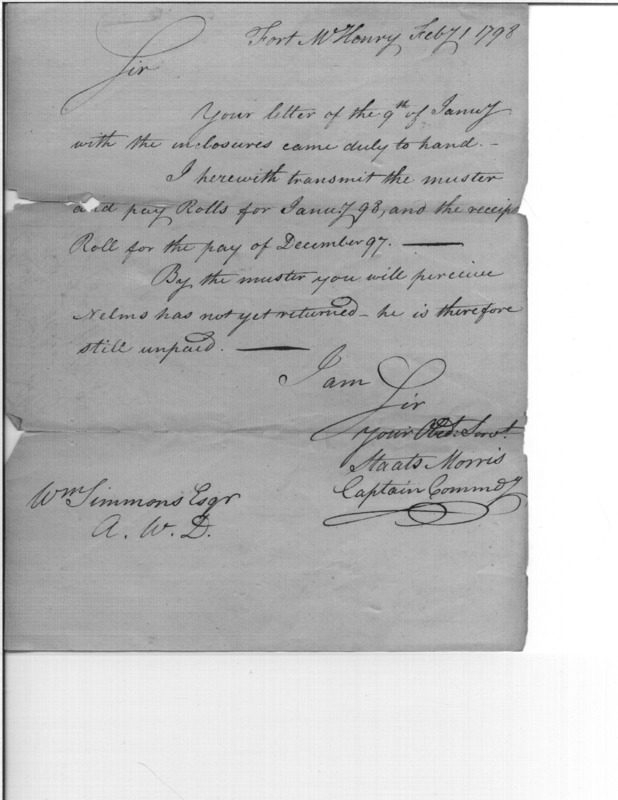 Fort McHenry Feby 1 1798
Sir
Your letter of the 9th of Janu'y
with the inclosures came duly to hand. -
I herewith transmit the muster
and pay Rolls for Janu'y 98, and the receipt
Roll for the pay of December 97. —
By the muster you will perceive
Nelms has not yet returned - he is therefore
still unpaid. —
I am
Sir
your Obdt. Servt.
Staats Morris
Captain Commdg
Wm Simmons Esqr
A. W. D.